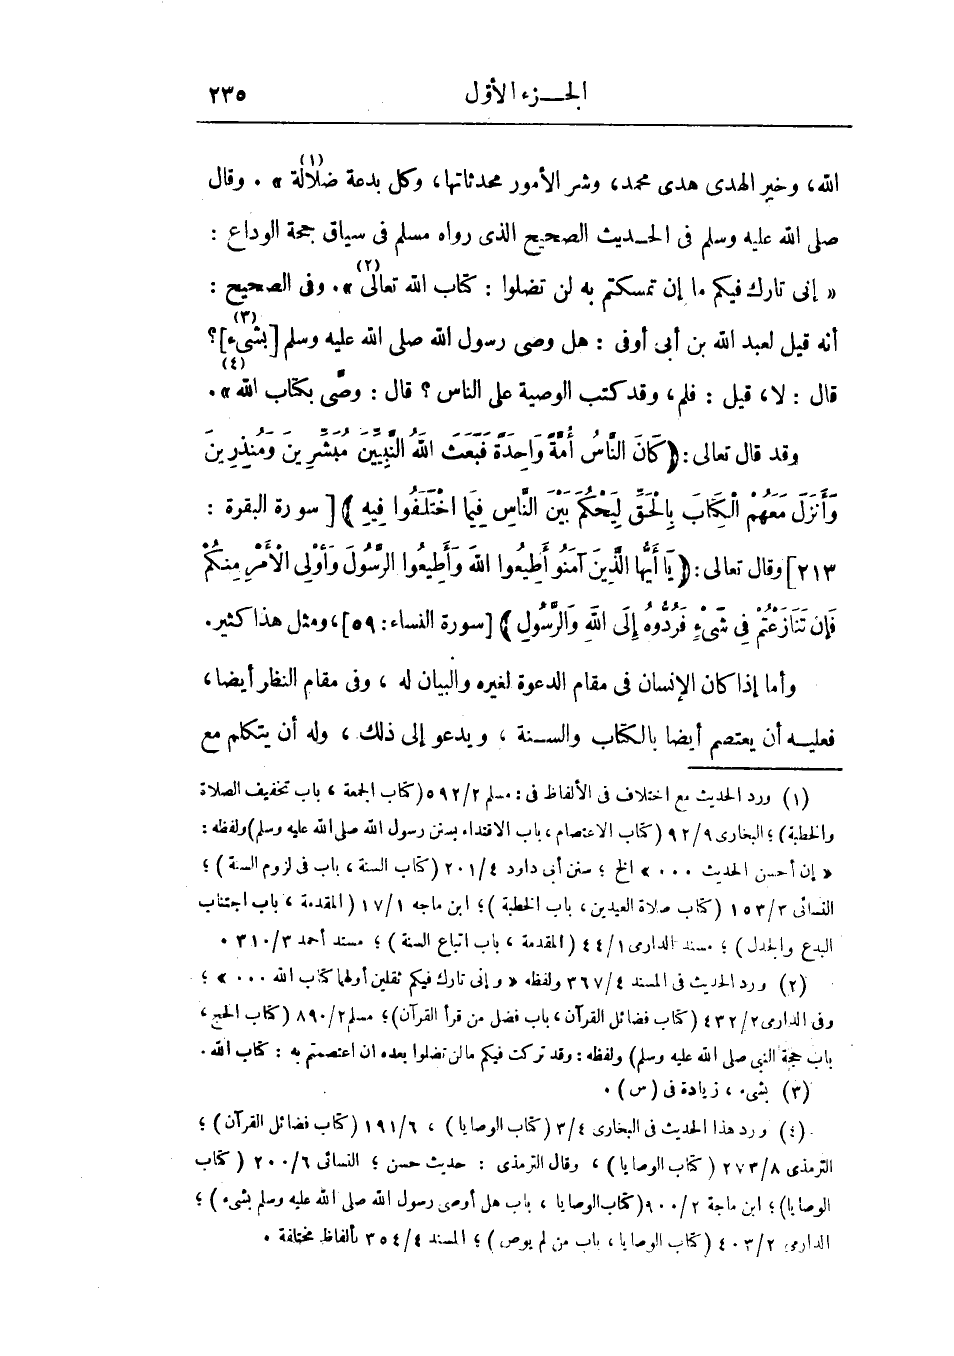 الجزء الأول ٢٣٥
الله، وخير الهدى هدى محمد، وشر الأمور محدثاتها، وكل بدعة ضلالة(١)». وقال
صلى الله عليه وسلم فى الحديث الصحيح الذى رواه مسلم فى سياق حجة الوداع :
« إنى تارك فيكم ما إن تمسكتم به لن تضلوا : كتاب الله تعالى(٢)». وفى الصحيح :
أنه قيل لعبد الله بن أبى أوفى : هل وصى رسول الله صلى الله عليه وسلم [بشىء](٣)؟
قال : لا، قيل : فلم، وقد كتب الوصية على الناس ؟ قال : وصَّى بكتاب الله(٤)».
وقد قال تعالى: ﴿كَانَ النَّاسُ أُمَّةً وَاحِدَةً فَبَعَثَ اللهُ النَّبِيِّينَ مُبَشِّرِينَ وَمُنذِرِينَ
وَأَنزَلَ مَعَهُمُ الْكِتَابَ بِالْحَقِّ لِيَحْكُمَ بَيْنَ النَّاسِ فِيمَا اخْتَلَفُوا فِيهِ﴾ [سورة البقرة :
٢١٣] وقال تعالى: ﴿يَا أَيُّهَا الَّذِينَ آمَنُو أَطِيعُوا اللهَ وَأَطِيعُوا الرَّسُولَ وَأُوْلِى الْأَمْرِ مِنكُمْ
فَإِن تَنَازَعْتُمْ فِى شَىْءٍ فَرُدُّوهُ إِلَى اللهِ وَالرَّسُولِ﴾ [سورة النساء: ٥٩]، ومثل هذا كثير.
وأما إذا كان الإنسان فى مقام الدعوة لغيره والبيان له ، وفى مقام النظر أيضا،
فعليه أن يعتصم أيضا بالكتاب والسنة ، ويدعو إلى ذلك ، وله أن يتكلم مع
(١) ورد الحديث مع اختلاف فى الألفاظ فى : مسلم ٥٩٢/٢ (كتاب الجمعة ، باب تخفيف الصلاة
والخطبة)؛ البخارى ٩٢/٩ (كتاب الاعتصام ، باب الاقتداء بسنن رسول الله صلى الله عليه وسلم) ولفظه :
« إن أحسن الحديث ...» الخ ؛ سنن أبى داود ٢٠١/٤ (كتاب السنة ، باب فى لزوم السنة ) ؛
النسائى ١٥٣/٣ (كتاب صلاة العيدين ، باب الخطبة )؛ ابن ماجه ١٧/١ (المقدمة ، باب اجتناب
البدع والجدل) ؛ مسند الدارمى ٤٤/١ (المقدمة ، باب اتباع السنة ) ؛ مسند أحمد ٣١٠/٣ .
(٢) ورد الحديث فى المسند ٣٦٧/٤ ولفظه « وإنى تارك فيكم ثقلين أولهما كتاب الله ...» ؛
وفى الدارمى ٤٣٢/٢ (كتاب فضائل القرآن ، باب فضل من قرأ القرآن)؛ مسلم ٨٩٠/٢ (كتاب الحج ،
باب حجة النبى صلى الله عليه وسلم) ولفظه : وقد تركت فيكم مالن تضلوا بعده ان اعتصمتم به : كتاب الله .
(٣) بشىء ، زيادة فى (س) .
(٤) ورد هذا الحديث فى البخارى ٣/٤ (كتاب الوصايا) ، ١٩١/٦ (كتاب فضائل القرآن) ؛
الترمذى ٢٧٣/٨ (كتاب الوصايا ) ، وقال الترمذى : حديث حسن ؛ النسائى ٢٠٠/٦ (كتاب
الوصايا) ؛ ابن ماجة ٩٠٠/٢ (كتاب الوصايا ، باب هل أوصى رسول الله صلى الله عليه وسلم بشىء) ؛
الدارمى ٤٠٣/٢ (كتاب الوصايا ، باب من لم يوص ) ؛ المسند ٣٥٤/٤ بألفاظ مختلفة .